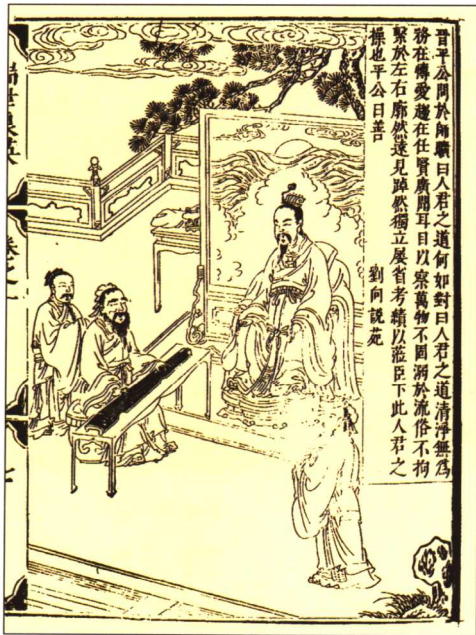 晉平公問於師曠曰人君之道何如對曰人君之道清淨無為
務在博愛趨在任賢廣開耳目以察萬物不固溺於流俗不拘
繫於左右廓然遠見踔然獨立屢省考績以涖臣下此人君之
操也平公曰善 劉向說苑
瑞世良英 卷之一